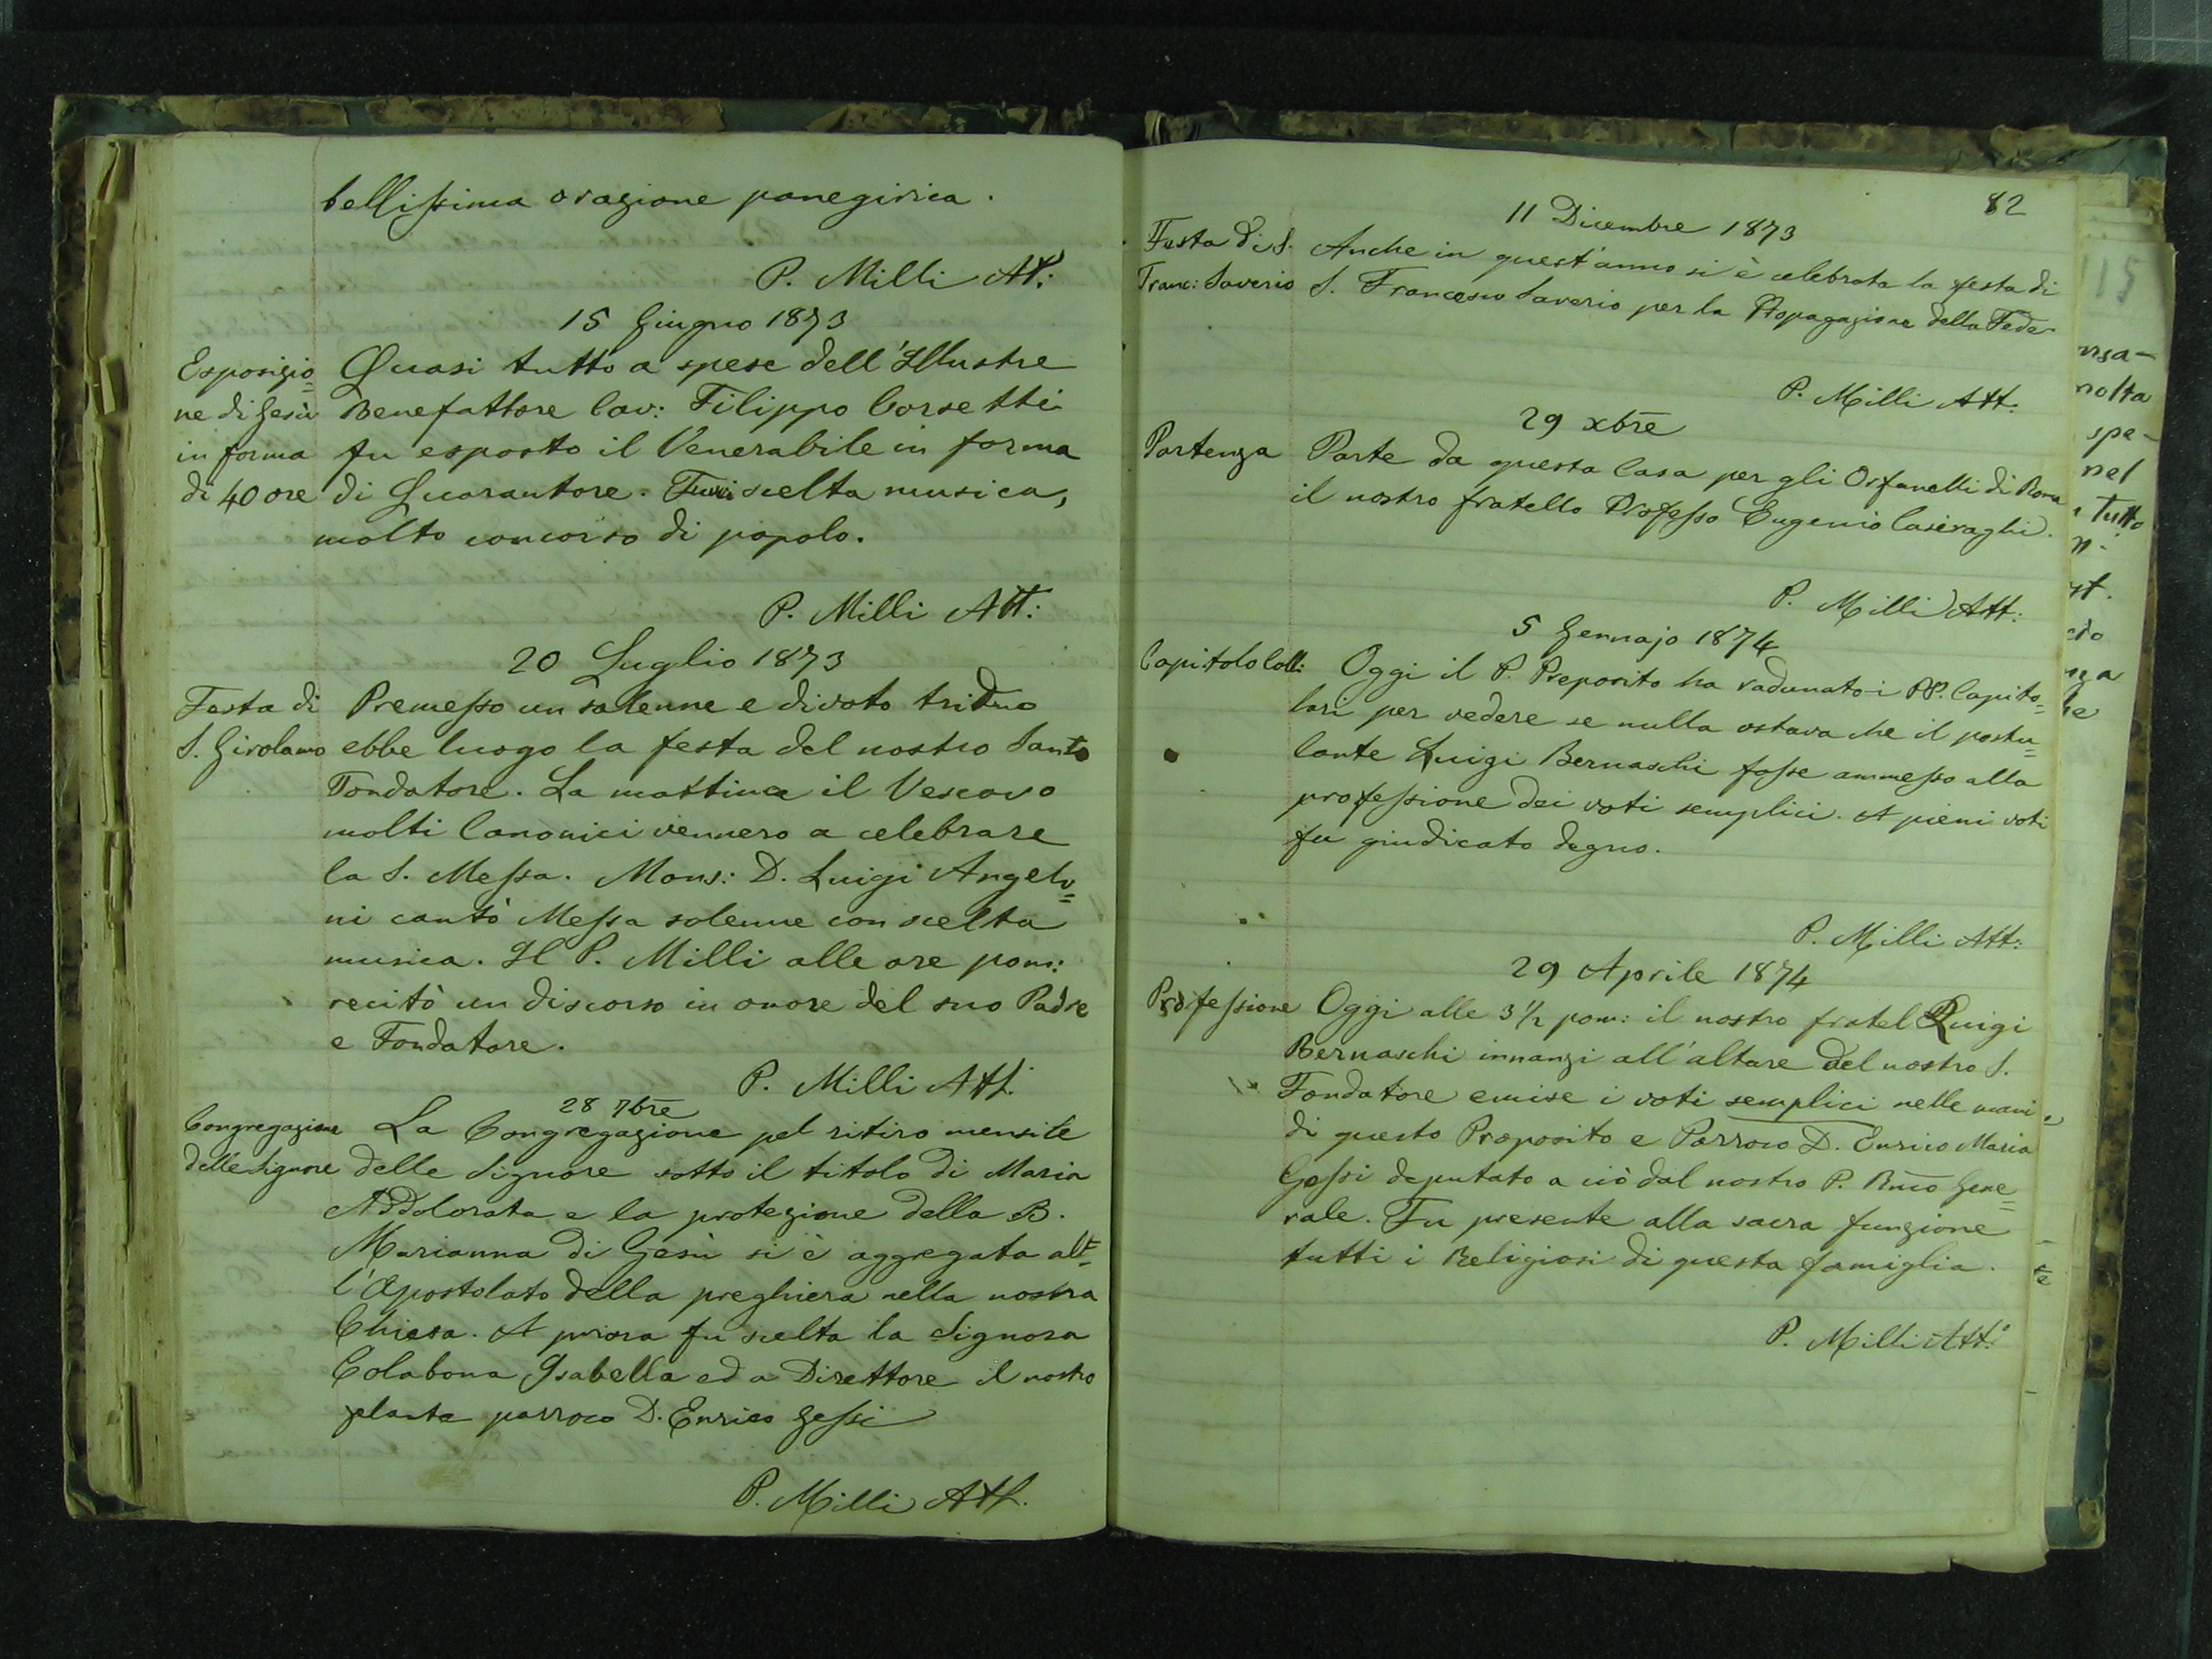 bellissima orazione panegirica.
P. Milli Att:
15 Giugno 1873
Esposizio= Quasi tutto a spese dell'Illustre
ne di Gesù Benefattore Cav: Filippo Corsetti
in forma fu esposto il Venerabile in forma
di 40 ore di Quarantore. Fuvvi scelta musica,
molto concorso di popolo.
P. Milli Att:
20 Luglio 1873
Festa di Premesso un solenne e divoto triduo
S. Girolamo ebbe luogo la festa del nostro Santo
Fondatore. La mattina il Vescovo
molti Canonici vennero a celebrare
la S. Messa. Mons: D. Luigi Angelo=
ni cantò Messa solenne con scelta
musica. Il P. Milli alle ore pom:
recitò un discorso in onore del suo Padre
e Fondatore.
P. Milli Att.
28 7bre
Congregazione La Congregazione pel ritiro mensile
delle Signore delle Signore sotto il titolo di Maria
Addolorata e la protezione della B.
Marianna di Gesù si è aggregata al=
l'Apostolato della preghiera nella nostra
Chiesa. A priora fu scelta la Signora
Colabona Isabella ed a Direttore il nostro
zelante parroco D. Enrico Gessi
P. Milli Att.
82
11 Dicembre 1873
Festa di S. Anche in quest'anno si è celebrata la festa di
Franc: Saverio S. Francesco Saverio per la Propagazione della Fede.
P. Milli Att.
29 xbre
Partenza Parte da questa Casa per gli Orfanelli di Roma
il nostro fratello Professo Eugenio Casiraghi.
P. Milli Att:
5 Gennajo 1874
Capitolo Coll: Oggi il P. Preposito ha radunato i PP. Capito=
lari per vedere se nulla ostava che il postu=
lante Luigi Bernaschi fosse ammesso alla
professione dei voti semplici. A pieni voti
fu giudicato degno.
P. Milli Att:
29 Aprile 1874
Professione Oggi alle 3 1/2 pom: il nostro fratel Luigi
Bernaschi innanzi all'altare del nostro S.
Fondatore emise i voti semplici nelle mani
di questo Preposito e Parroco D. Enrico Maria
Gessi deputato a ciò dal nostro P. Rmo Gene=
rale. Fu presente alla sacra funzione
tutti i Religiosi di questa famiglia.
P. Milli Att:
115
nolta
spe-
nel
Tutto